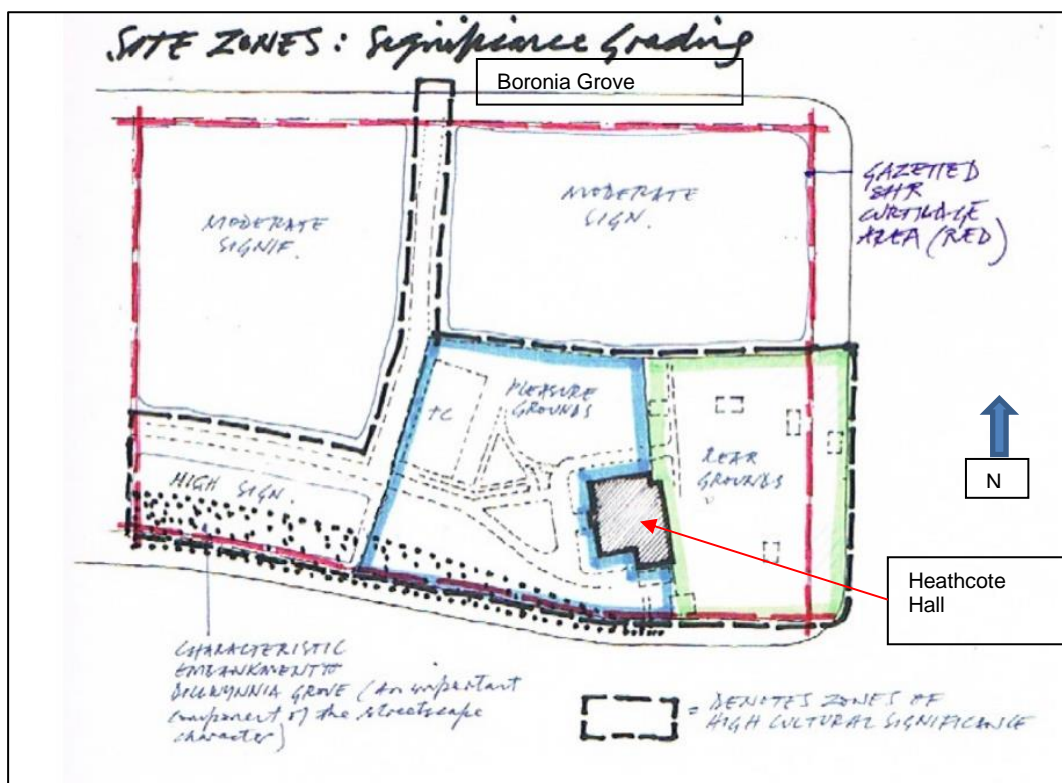 SITE ZONES: Significance Grading
Boronia Grove
GAZETTED
SHR
CURTILAGE
AREA (RED)
MODERATE
SIGNIF.
MODERATE
SIGN.
PLEASURE
GROUNDS
TC
REAR
GROUNDS
N
HIGH SIGN.
Heathcote
Hall
CHARACTERISTIC
EMBANKMENT TO
DILLWYNNIA GROVE (An important
component of the streetscape
character)
= DENOTES ZONES OF
HIGH CULTURAL SIGNIFICANCE